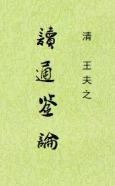 清 王夫之
讀通鑒論